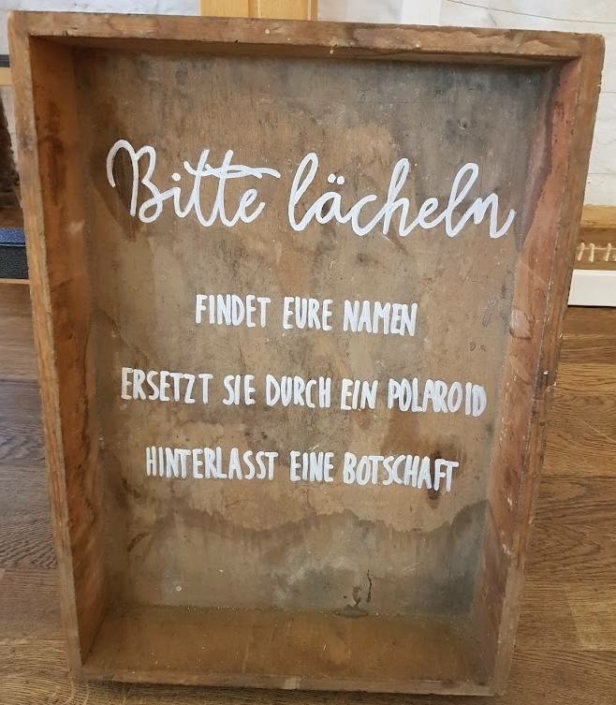 Bitte lächeln
FINDET EURE NAMEN
ERSETZT SIE DURCH EIN POLAROID
HINTERLASST EINE BOTSCHAFT